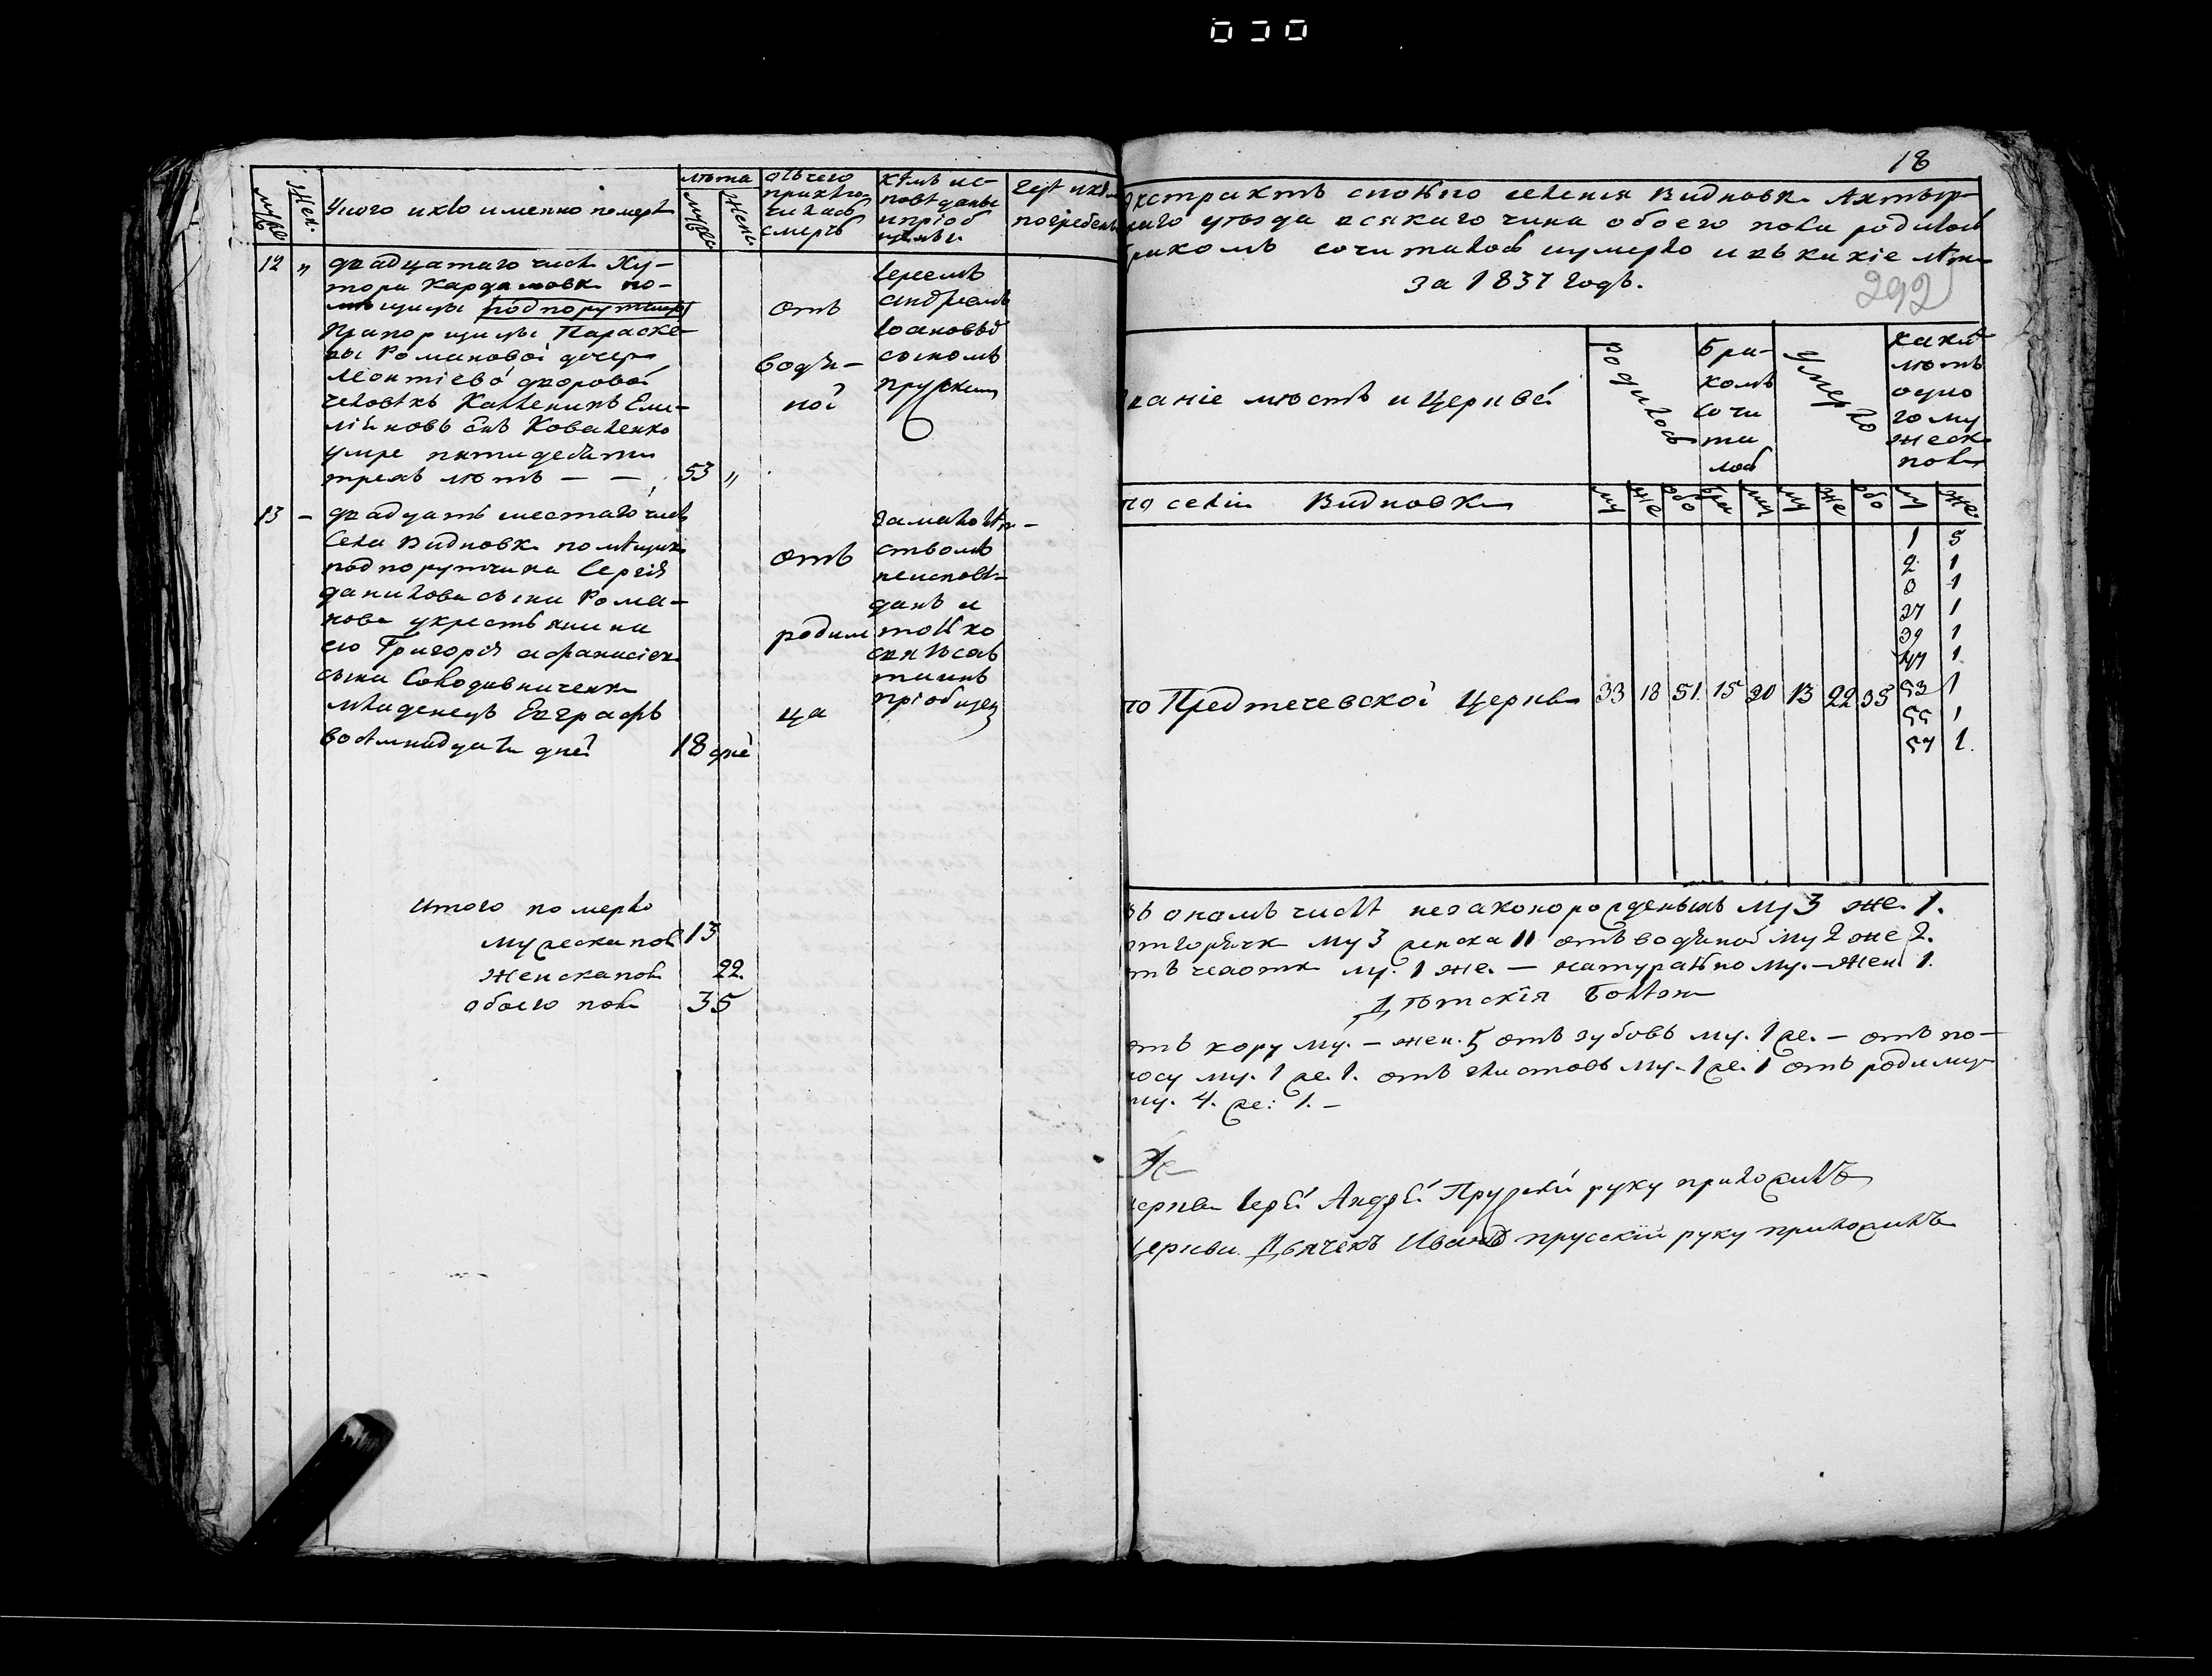 030
Муже
Жен.
У кого и кто именно померъ
лѣта
Мужес
Жены
отъ чего
приключи-
чилась
смерть
кѣмъ ис-
повѣданы
и пріоб
щены
гдѣ и кѣмъ
погребены
12 "
двадцатаго числа Ху-
тора Кардашовки по-
мѣщицы подпорутчицы
Прапорщицы Параске-
вы Романовой дочери
Леонтіевой дворовой
человѣкъ Каленикъ Еме-
ліяновъ снъ Коваленко
умре пятидесяти
трехъ лѣтъ — —
53 "
отъ
водян-
ной
Іереемъ
Андреемъ
Іоановымъ
сыномъ
прускимъ
13 -
двадцать шестаго числа
Села Видновки помѣщика
подпорутчика Сергія
данилова сына Рома-
нова у крестьянина
его Григорія афанасіева
сына
младенецъ Евграфъ
восемнадцати дней
18 дней
отъ
родим
ца
за малолѣт-
ствомъ
неисповѣ-
данъ и
только
святыхъ
таинъ
пріобщен
Итого померло
мужеска пола 13
Женска пола 22.
обоего пола 35
18
Экстрактъ сколько селенія Видновки Ахтыр-
скаго уѣзда всякаго чина обоего пола родилось
бракомъ сочиталось и умерло и въ какіе лѣта
за 1837 годъ.
292
званіе мѣстъ и Церквей
родилось
бра-
комъ
сочи
та
лось
умерло
каких
лѣтъ
одно
го му
жеска
пола
му
же
обо
му
же
обо
Же.
по селіи Видновки
по Предтечевской Церкви 33 18 51. 15 30 13 22 35
1 5
2 1
8 1
37 1
39 1
47 1
53 1
55 1
57 1.
въ ономъ числѣ незаконорожденныхъ му 3 же. 1.
отъ горячки му 3 женска 11 отъ водяной му 2 же 2.
отъ чахотки му. 1 же. — натурально му. — Жен. 1.
Дѣтскія Болѣзни
отъ кору му. — жен. 5 отъ зубовъ му. 1 же. — отъ по-
носу му. 1 же. 1. отъ глистовъ му. 1 же. 1 отъ родимца
му. 4. же: 1. —
церкви Іерей Андрей Прускій руку приложилъ
Церкви Дьячекъ Иванъ прусскій руку приложилъ